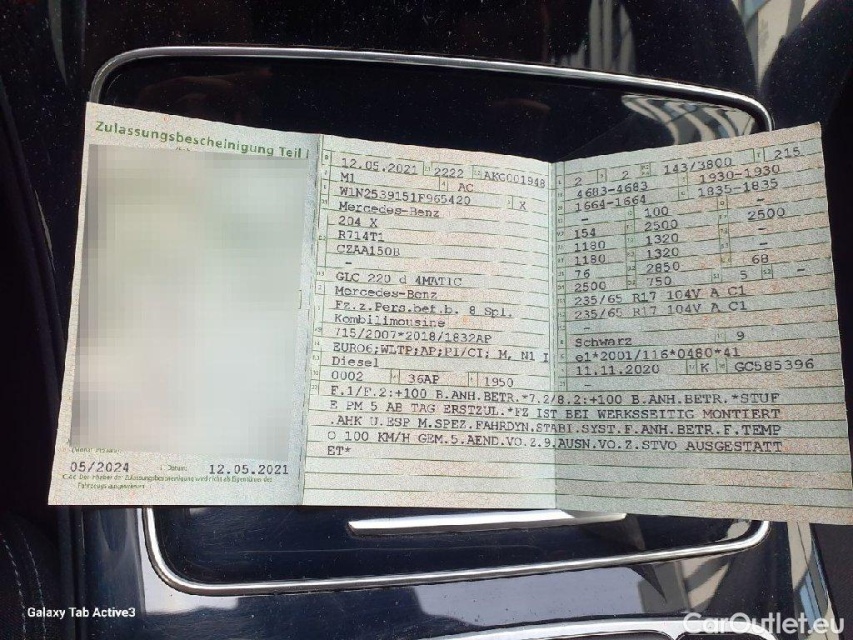 Zulassungsbescheinigung Teil I
05/2024
Datum: 12.05.2021
12.05.2021 2222 AKG001948
M1 AC
W1N2539151F965420 X
Mercedes-Benz
204 X
R714T1
CZAA150B
-
GLC 220 d 4MATIC
Mercedes-Benz
Fz.z.Pers.bef.b. 8 Spl.
Kombilimousine
715/2007*2018/1832AP
EURO6;WLTP;AP;PI/CI; M, N1 I
Diesel
0002 36AP 1950
2 2 143/3800 215
4683-4683 1930-1930
1664-1664 1835-1835
- 100 -
154 2500 2500
1180 1320 -
1180 1320 -
76 2850 68
2500 750 5 -
235/65 R17 104V A C1
235/65 R17 104V A C1
-
Schwarz 9
e1*2001/116*0480*41
11.11.2020 K GC585396
-
F.1/F.2:+100 B.ANH.BETR.*7.2/8.2:+100 B.ANH.BETR.*STUF
E PM 5 AB TAG ERSTZUL.*FZ IST BEI WERKSSEITIG MONTIERT
.AHK U.ESP M.SPEZ.FAHRDYN.STABI.SYST.F.ANH.BETR.F.TEMP
O 100 KM/H GEM.5.AEND.VO.Z.9.AUSN.VO.Z.STVO AUSGESTATT
ET*
Galaxy Tab Active3
CarOutlet.eu